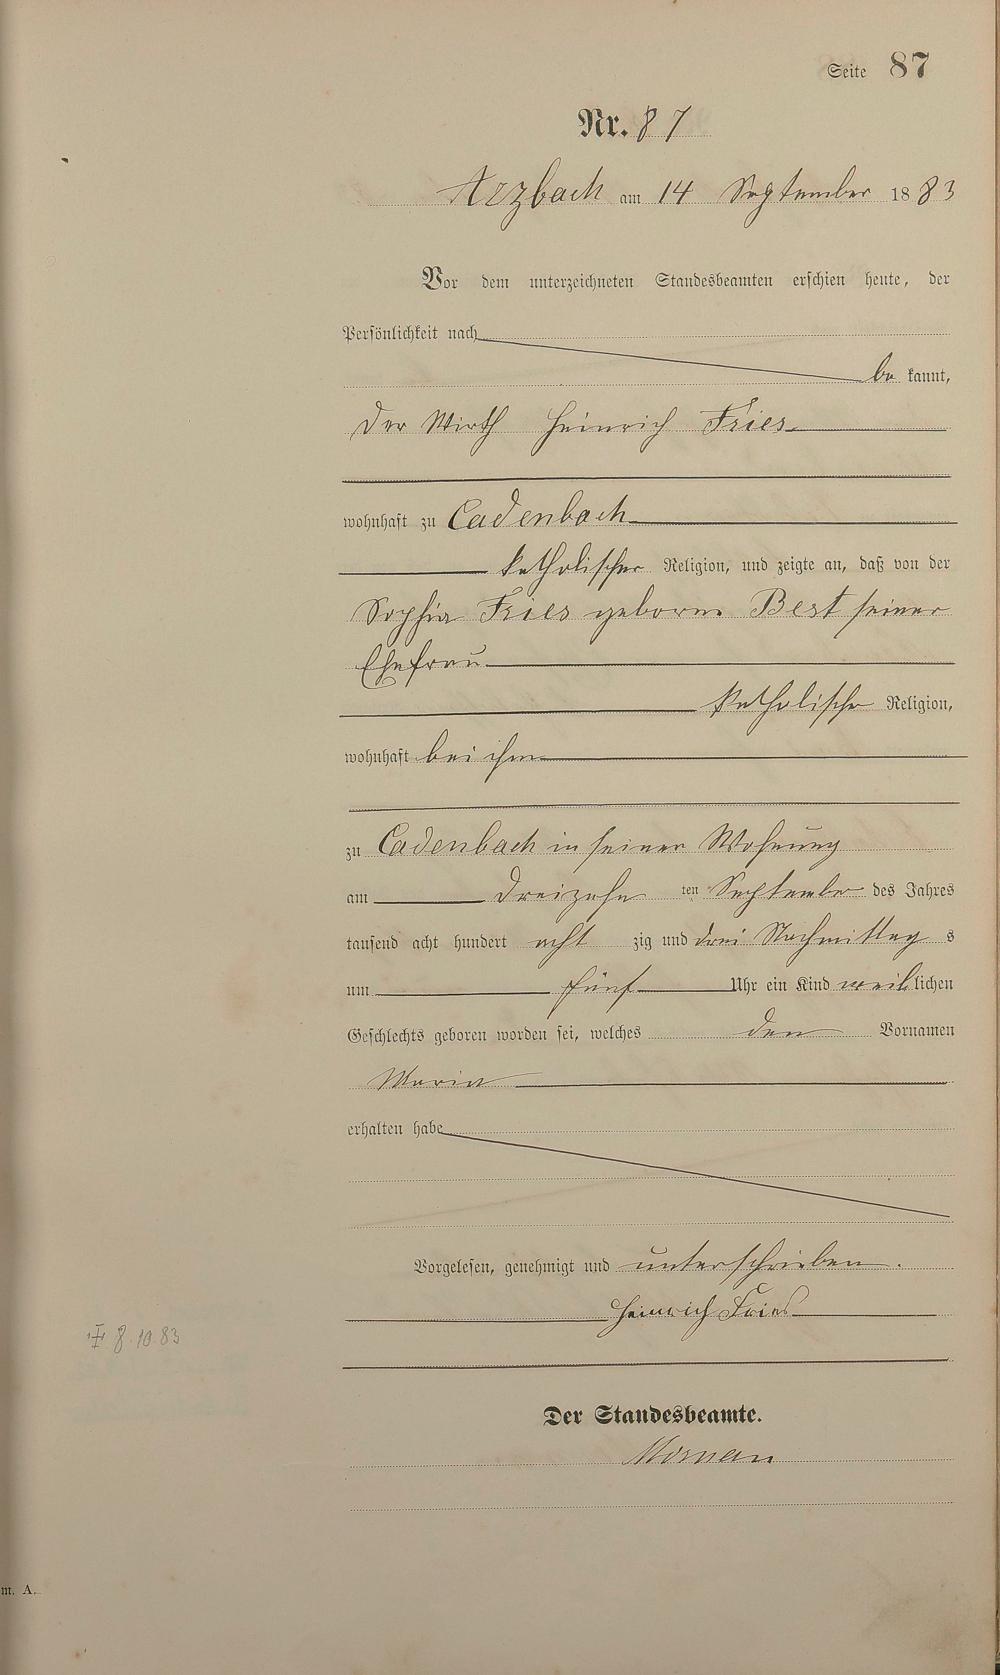 Seite 87
Nr. 87
Arzbach am 14 September 1883
Vor dem unterzeichneten Standesbeamten erschien heute, der
Persönlichkeit nach
be kannt,
der Wirth Heinrich Fries
wohnhaft zu Cadenbach
katholischer Religion, und zeigte an, daß von der
Sophia Fries geborne Best seiner
Ehefrau
katholischer Religion,
wohnhaft bei ihm
zu Cadenbach in seiner Wohnung
am dreizehn ten September des Jahres
tausend acht hundert acht zig und drei Nachmittag s
um fünf Uhr ein Kind weib lichen
Geschlechts geboren worden sei, welches den Vornamen
Maria
erhalten habe
Vorgelesen, genehmigt und unterschrieben.
Heinrich Fries
8.10.83
Der Standesbeamte.
m. A.